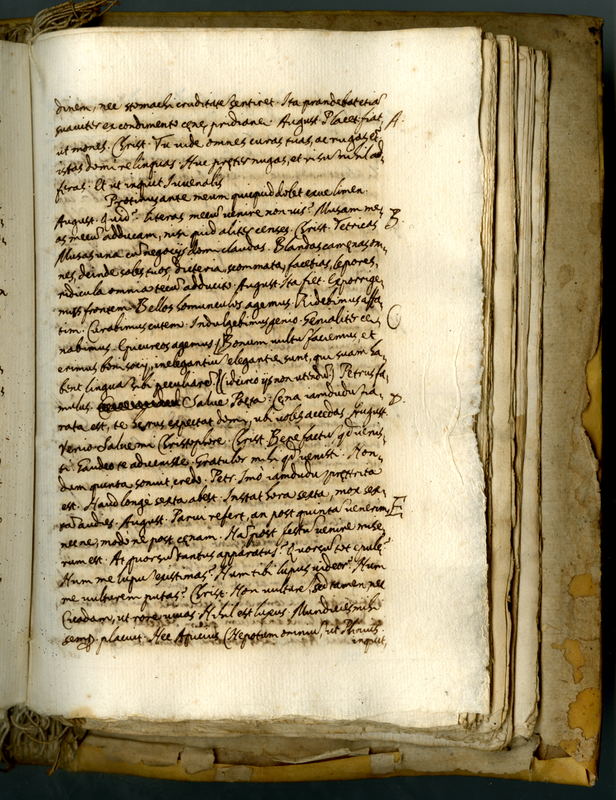 dinem, nec stomachi cruditatē sentiret. Ita prandebat etiā
suaviter ex condimento cenę pridianę. August. Placet. fiat, A.
ut mones. Christ. Tu vide omnes curas tuas, ac rugas
istas domi relinquas. Huc pręter nugas, et risū nihil ad,
feras. Et ut inquit Iuvenalis
Protinus ante meum quicquid dolet exue limen.
August. Quid? literas mecū venire non vis? Musam me, B.
as mecū adducam, nisi quid aliter censes. Christ. Tetricas
Musas una cū negocijs domi claudas. Blandas camęnas om,
nes, deinde sales tuos, dicteria, scommata, facetias, lepores,
ridicula omnia tecū adducito. August. Ita fiet. Exporrige,
mus frontem. Bellos homunculos agemus. Ridebimus affa,
tim. Curabimus cutem. Indulgebimus genio. Genialiter ce, C
nabimus. Epicureos agemus. Bonum vultū faciemus, et
erimus boni socij.
bent lingua peculiare (idcirco ijs non utendū). Petrus fa,
mulus. Salve Poeta. Cena iamdudū pa, D.
rata est, te herus expectat domi, ubi voles accedas. August.
Venio. Salve mi Christophore. Christ. Bene factū qd venis,
ti. Gaudeo te advenisse. Gratulor mihi qd venisti. Non,
dum quinta sonuit, credo. Petr. Imò iamdudū pręterita
est. Haud longè sexta abest. Instat hora sexta, mox sex,
tā audies. August. Parvi refert, an post quintā venerim, E
nec ne, modo ne post cenam. Nā post festū venire mise,
rum est. At quorsū tantus apparatus? Quorsū tot epulę?
Num me lupū existimas? Num tibi lupus videor? Num
me vulturem putas? Christ. Non vulturē, sed tamen nec
Cicadam, ut rore vivas. Nihil est luxus. Mundicies mihi
semp. placuit. Nec Apicius (Nepotum omniū, ut Plinius
inquit,